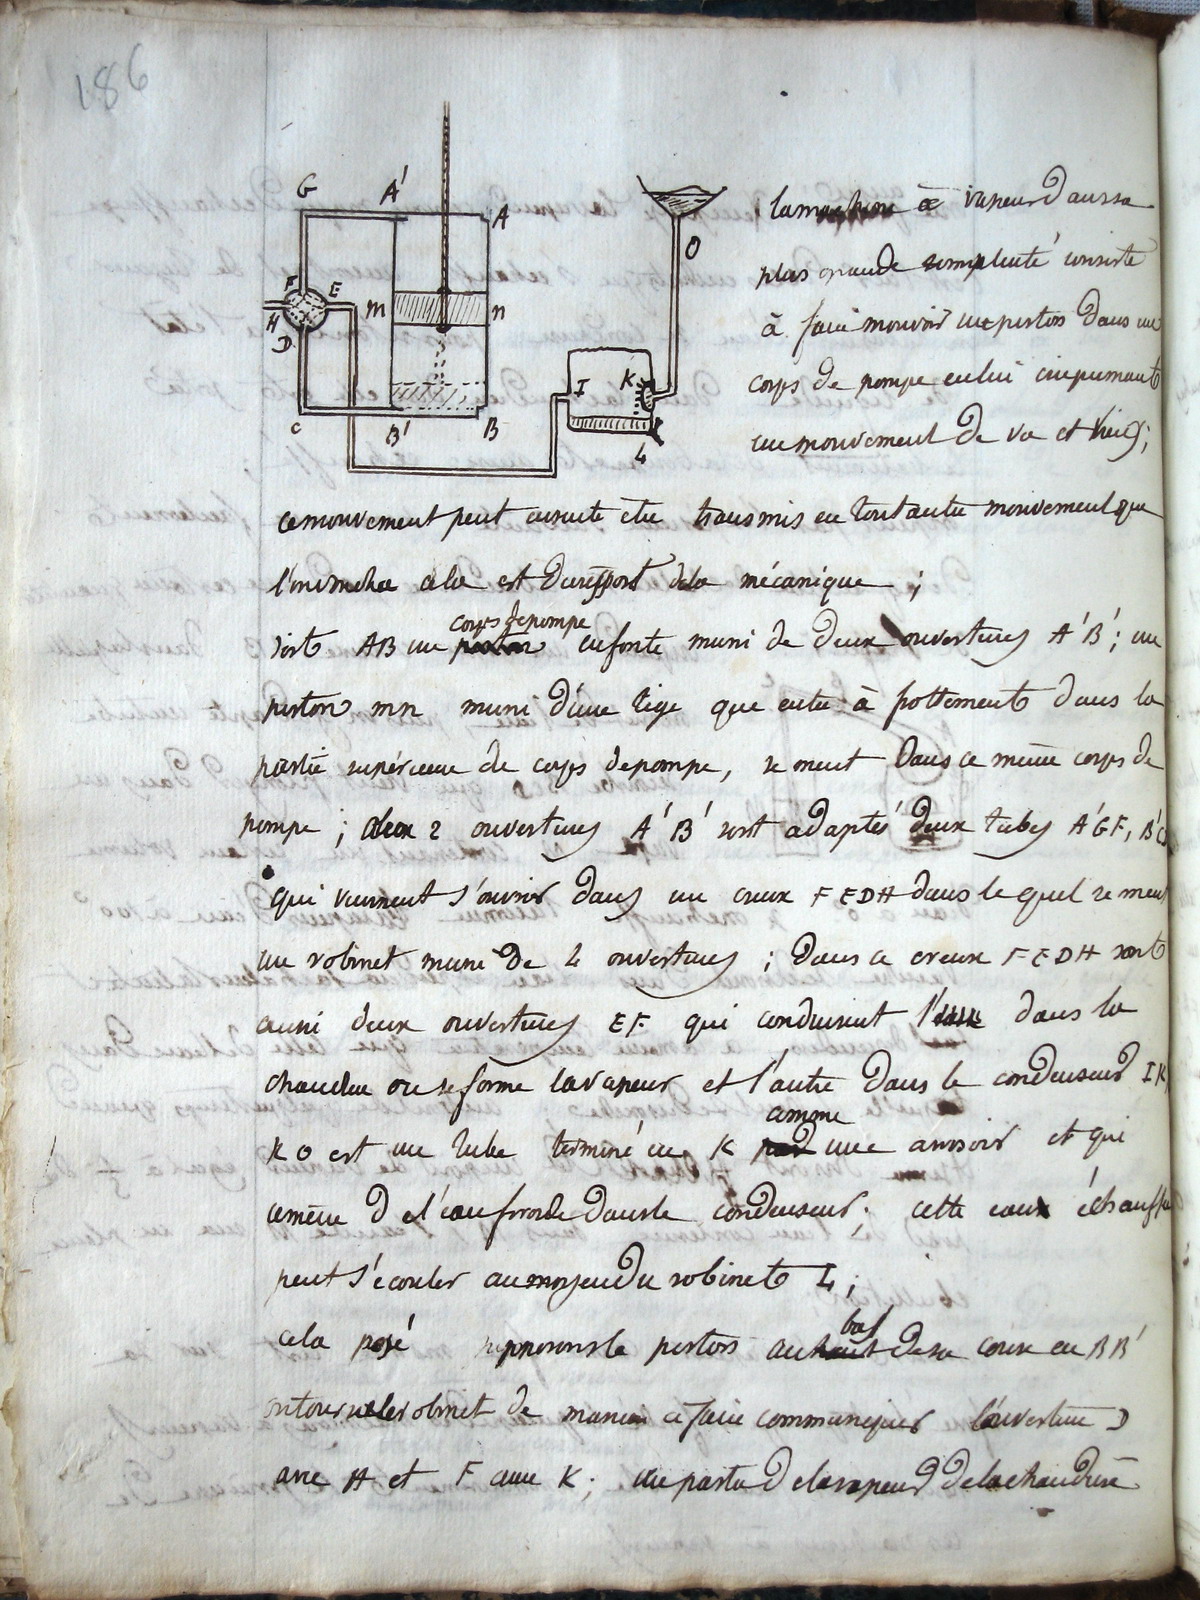 186
G A' A
O
F E m n
H
D
I K
C B' B
L
la machine à vapeur dans sa
plus grande simplicité consiste
à faire mouvoir un piston dans un
corps de pompe en lui imprimant
un mouvement de va et vient;
ce mouvement peut ensuite être transmis en tout autre mouvement que
l'on voudra cela est du ressort dela mécanique ;
soit AB un corps de pompe en fonte muni de deux ouvertures A'B'; un
piston mn muni d'une tige que entre à frottement dans la
partie supérieure de corps de pompe, se meut dans ce même corps de
pompe ; deux 2 ouvertures A'B' sont adaptés deux tubes A'GF, B'CD
qui viennent s'ouvrir dans un creux FEDH dans le quel se meut
un robinet muni de 4 ouvertures ; dans ce creux FEDH sont
aussi deux ouvertures EF qui conduisent l'une dans la
chaudiere ou se forme la vapeur et l'autre dans le condenseur IK
KO est un tube terminé en K comme une arrosoir et qui
amène de l'eau froide dans le condenseur; cette eau échauffée
peut s'écouler au moyen du robinet L;
cela posé supposons le piston au bas de sa course en BB'
on tourne le robinet de maniere a faire communiquer l'ouverture D
avec H et F avec K; une partie de la vapeur de la chaudière